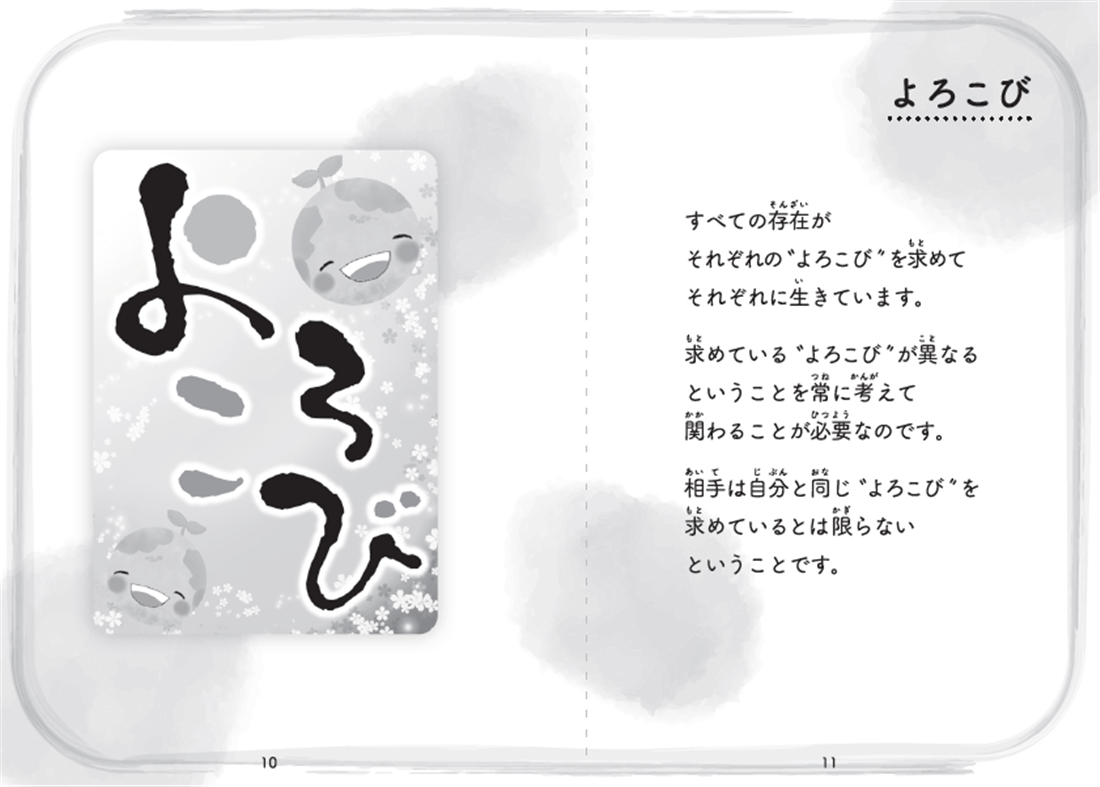 よろこび
よろこび
すべての存在が
それぞれの〝よろこび〟を求めて
それぞれに生きています。
求めている〝よろこび〟が異なる
ということを常に考えて
関わることが必要なのです。
相手は自分と同じ〝よろこび〟を
求めているとは限らない
ということです。
10
11